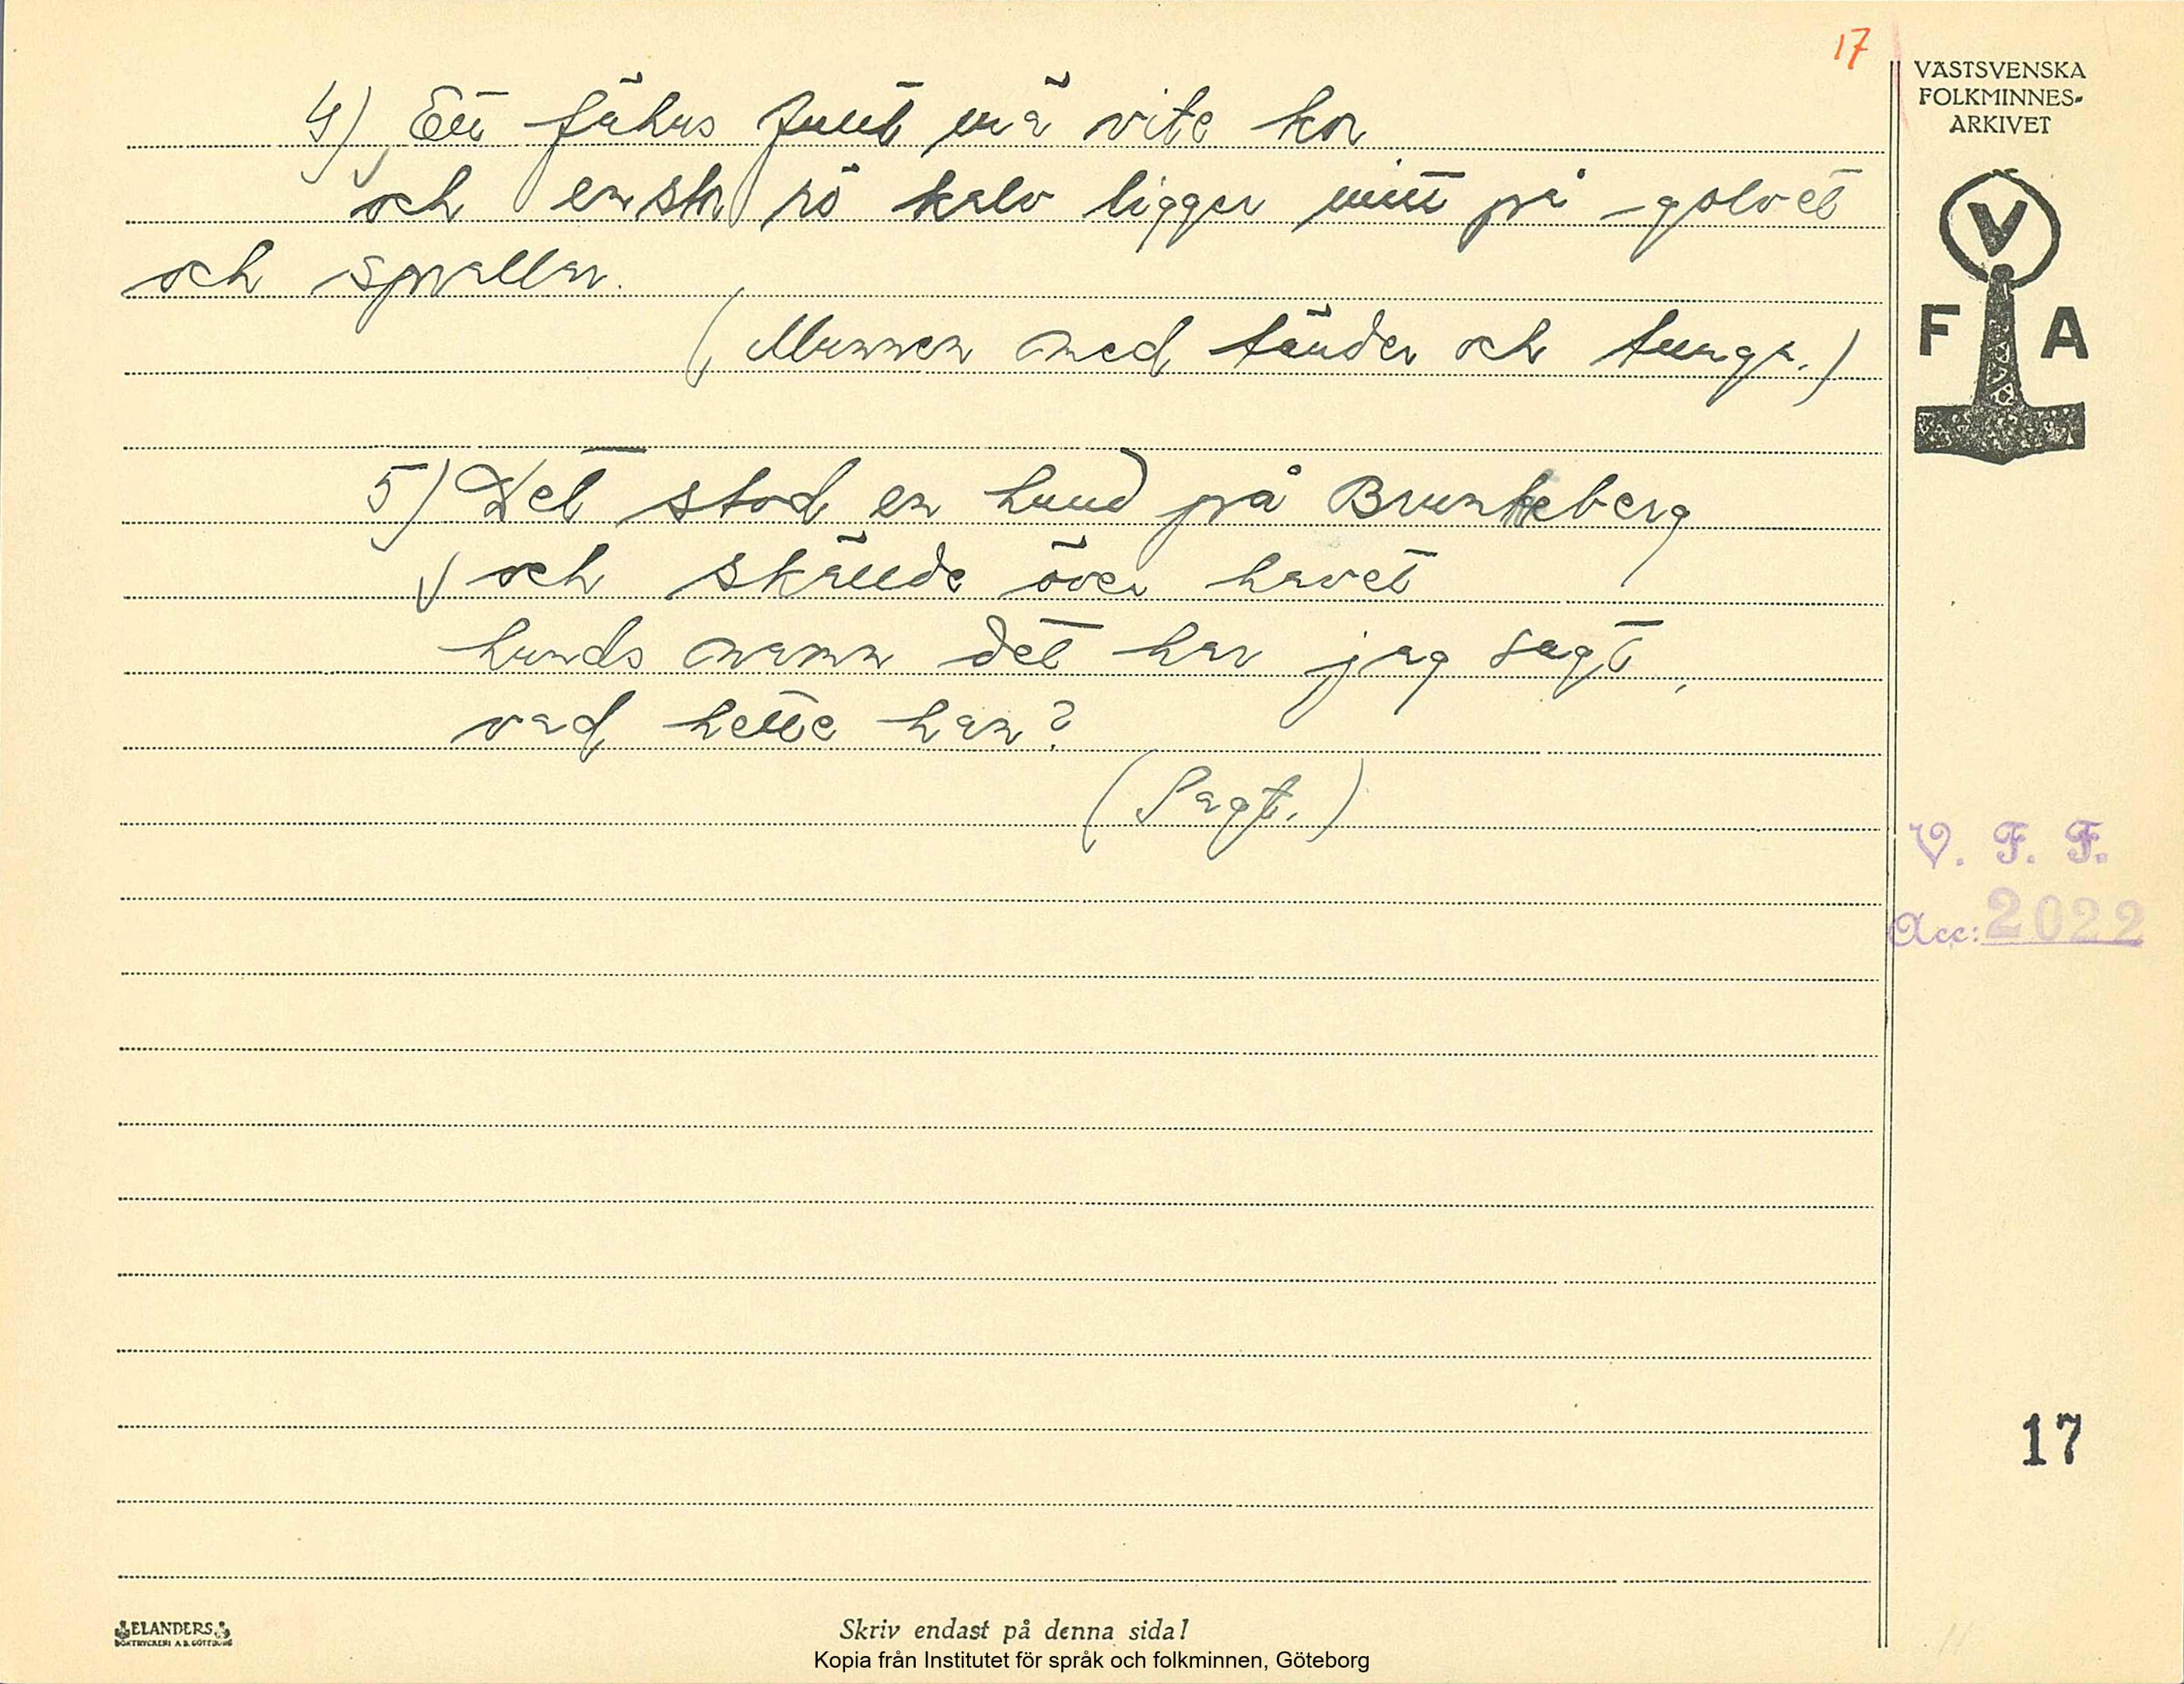 17
VÄSTSVENSKA
FOLKMINNES-
ARKIVET
V
F A
4) Ett fähus fullt mä vite kor
och en sto rö kalv ligger mitt på golvet
och sprallar.
(Munnen med tänder och tunga.)
5) Det stod en hund på Brunkeberg
och skällde över havet
hunds namn det har jag sagt,
vad hette han?
(Sagt.)
V. F. F.
Acc: 2022
17
ELANDERS
BOKTRYCKERI A.B. GÖTEBORG
Skriv endast på denna sida!
Kopia från Institutet för språk och folkminnen, Göteborg